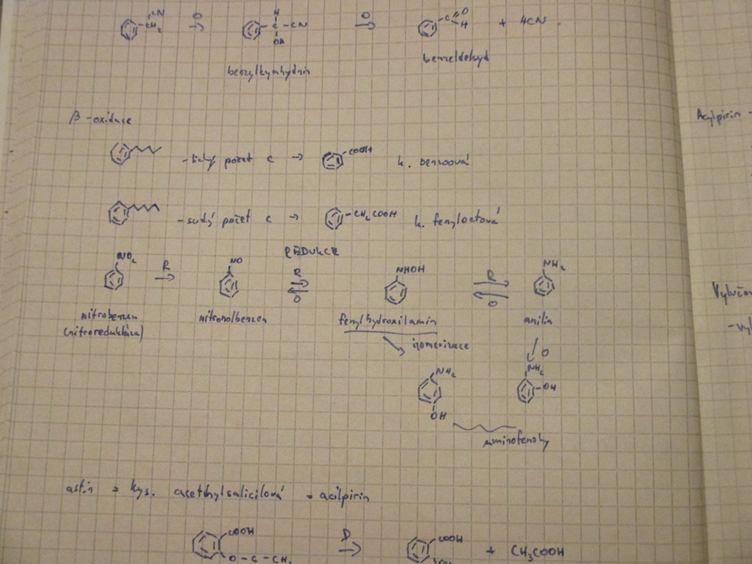 CN
CH2 O → H C CN OH O → C O H + HCN.
benzylkyanhydrin benzaldehyd
β-oxidace
- lichý počet c → COOH k. benzoová
- sudý počet c → CH2COOH k. fenyloctová
REDUKCE
NO2 R → NO R O NHOH R O NH2
nitrobenzen nitrosolbenzen fenylhydroxilamin anilin
(nitroreduktáza)
izomerizace O
NH2 NH2
OH OH
aminofenoly
kys. acethylsalicilová = acilpirin
COOH D → COOH + CH3COOH
O - C - CH3
Acylpirin -
Vylučov
- vyl